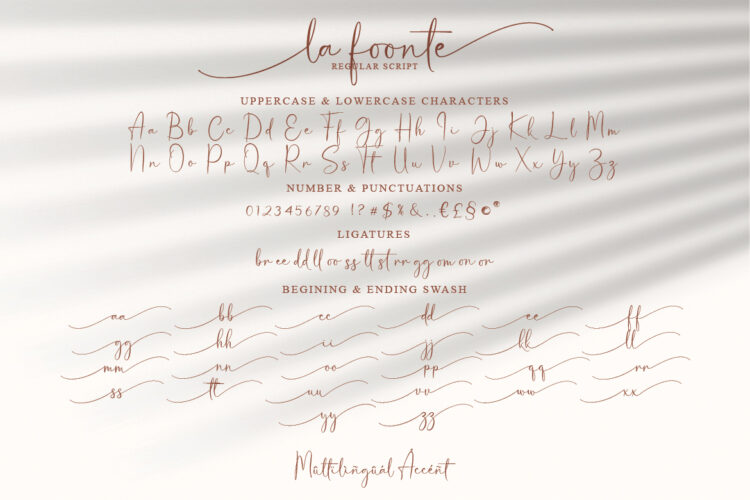 la foonte
REGULAR SCRIPT
UPPERCASE & LOWERCASE CHARACTERS
Aa Bb Cc Dd Ee Ff Gg Hh Ii Jj Kk Ll Mm
Nn Oo Pp Qq Rr Ss Tt Uu Vv Ww Xx Yy Zz
NUMBER & PUNCTUATIONS
0123456789 !?#$%&..€£§©®
LIGATURES
br ee dd ll oo ss tt st rr gg om on or
BEGINING & ENDING SWASH
aa bb cc dd ee ff
gg hh ii jj kk ll
mm nn oo pp qq rr
ss tt uu vv ww xx
yy zz
Mûltilingüál Accént